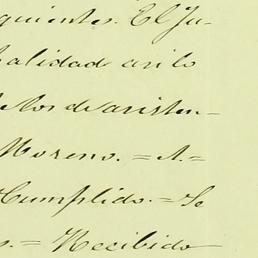 quientes. El Ju-
alidad asi lo
los de asisten-
Moreno. = A. =
Cumplido. = Se
o. = Recibido